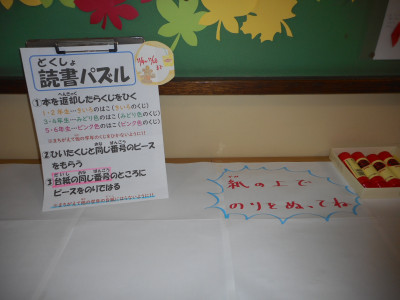 どくしょ
読書パズル
①本を返却したらくじをひく
1・2年生…きいろのはこ(きいろのくじ)
3・4年生…みどり色のはこ(みどり色のくじ)
5・6年生…ピンク色のはこ(ピンク色のくじ)
2ひいたくじと同じ番号のピース
をもらう
3台紙の同じ番号のところに
ピースをのりではる
紙の上で
のりをぬってね